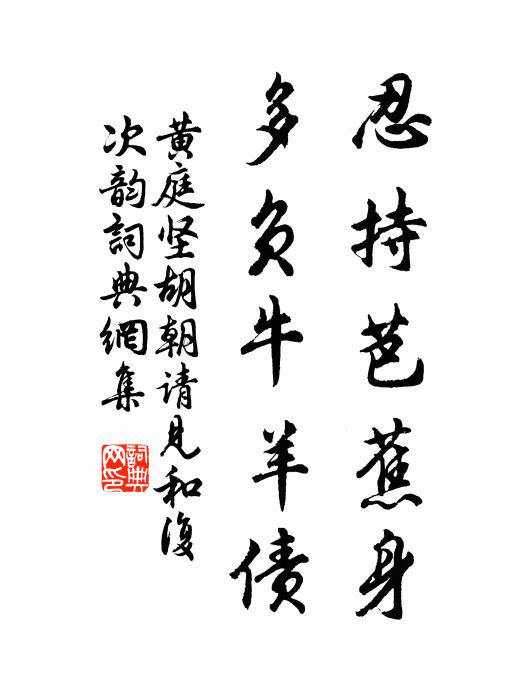 忍持芭蕉身
多负牛羊债
黄庭坚胡朝请见和復
次韵詞典網集
詞典網印